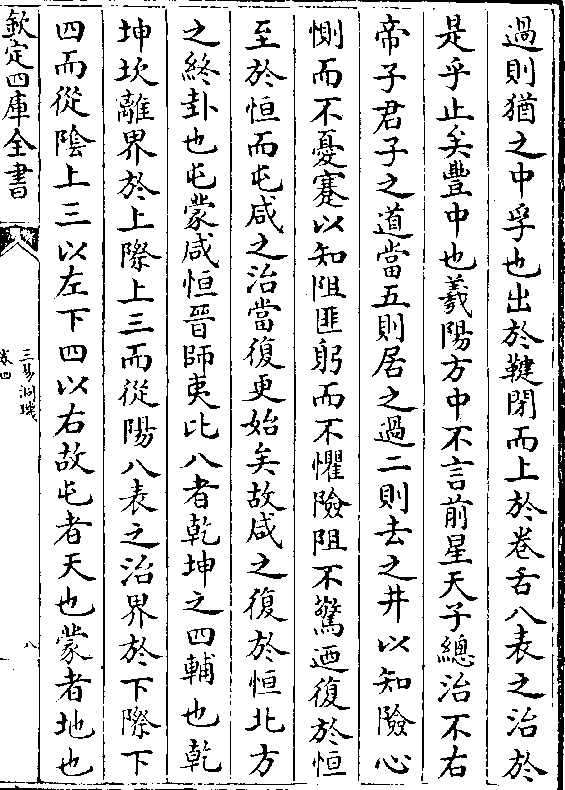 過則猶之中孚也出於鞬閉而上於卷舌八表之治於
是乎止矣豐中也羲陽方中不言前星天子總治不右
帝子君子之道當五則居之過二則去之井以知險心
惻而不憂蹇以知阻匪躬而不懼險阻不驚迺復於恒
至於恒而屯咸之治當復更始矣故咸之復於恒北方
之終卦也屯蒙咸恒晉師夷比八者乾坤之四輔也乾
坤坎離界於上際上三而從陽八表之治界於下際下
四而從陰上三以左下四以右故屯者天也蒙者地也
欽定四庫全書
三易洞璣
卷四
八